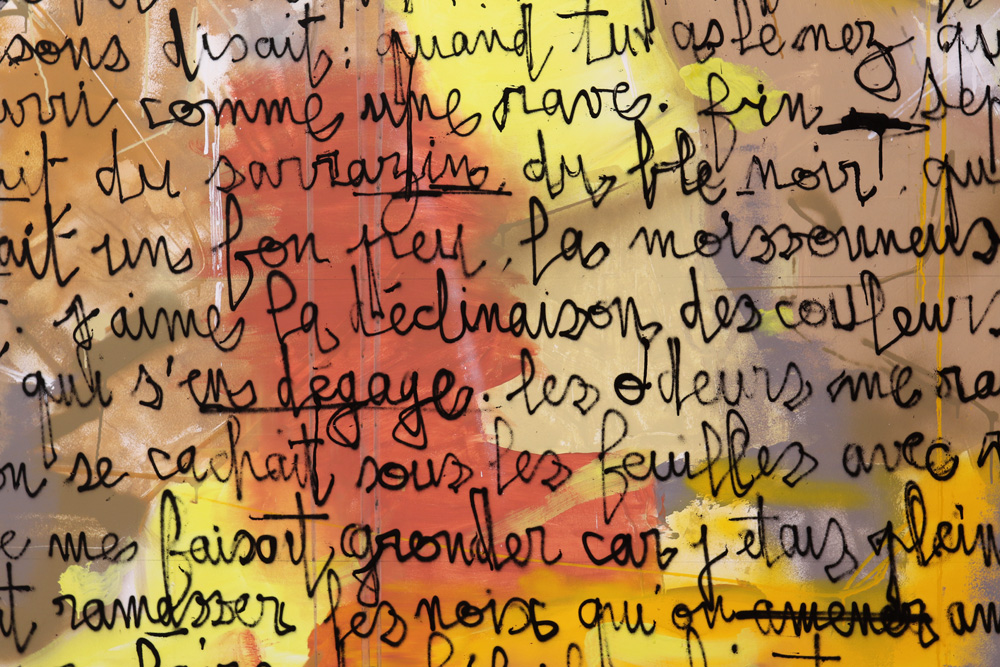 sons disait : quand tu as le nez
comme une rave. fin
du sarrazin, du blé noir,
ait un bon feu, las moissonneurs
. j'aime la déclinaison des couleurs
qui s'en dégage. les odeurs me ra
on se cachait sous les feuilles avec
e me faisait gronder car j'étais plein
ramasser les noix qu'on amener am